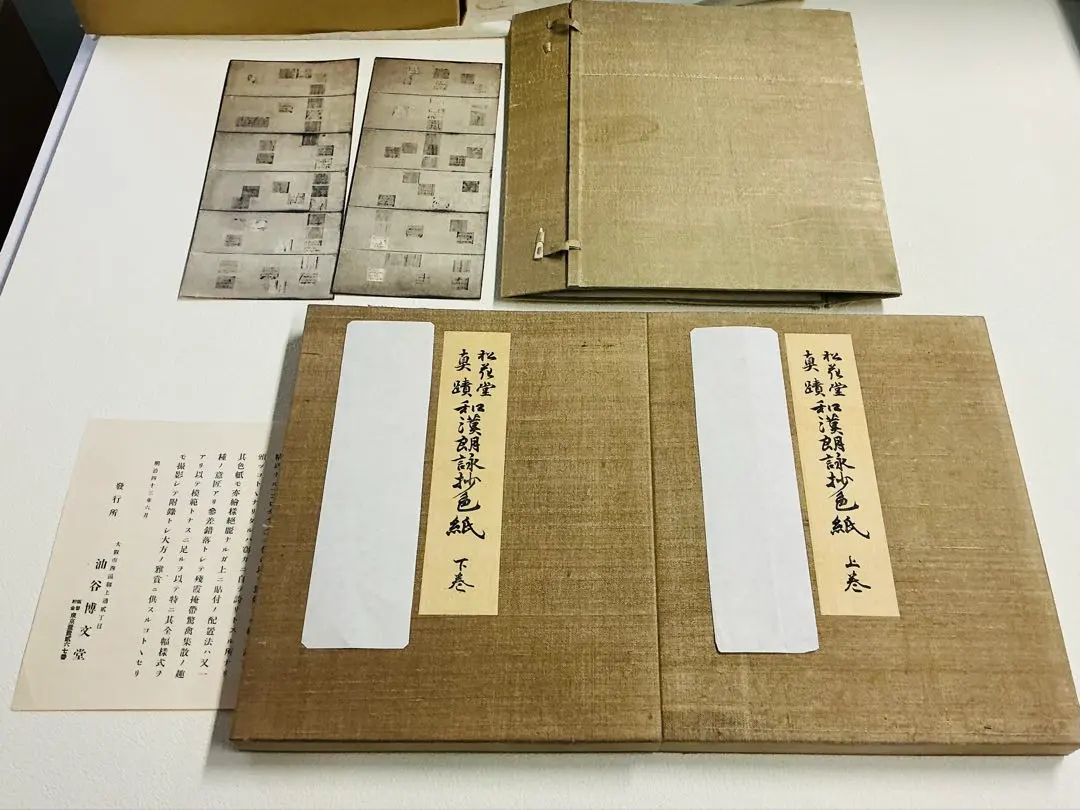 松花堂
真蹟
和漢朗詠抄色紙
上巻
松花堂
真蹟
和漢朗詠抄色紙
下巻
其色紙モ亦繪樣絕麗ナルガ上ニ貼付ノ配置法ハ又一
種ノ意匠アリ參差錯落トシテ殘霞掩帶驚禽集散ノ趣
アリ以テ模範トナスニ足ルヲ以テ特ニ其全幅樣式ヲ
モ撮影シテ附錄トシ大方ノ雅賞ニ供スルコトヽセリ
明治四十三年六月
發行所
油谷博文堂